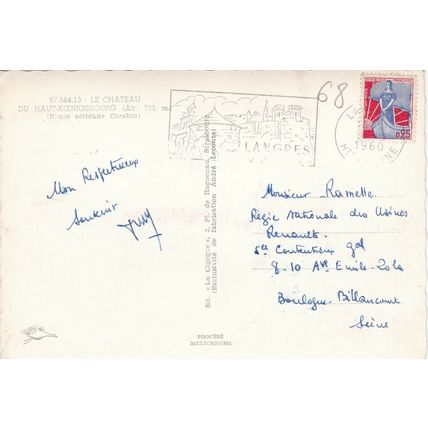 67.564.13 - LE CHATEAU
DU HAUT-KŒNIGSBOURG (Alt. 755 m.)
(Photo aérienne Carabin)
68
LANGRES
1960
REPUBLIQUE FRANÇAISE
0,25
Mon Respectueux
Souvenir
Ed. « La Cigogne », 3, Pl. de Haguenau, Strasbourg
(Exclusivité de fabrication André Leconte)
Monsieur Ramette
Régie Nationale des Usines
Renault.
Sce Contentieux gal
8-10 Ave Emile-Zola
Boulogne-Billancourt
Seine
PROCÉDÉ
MEXICHROME